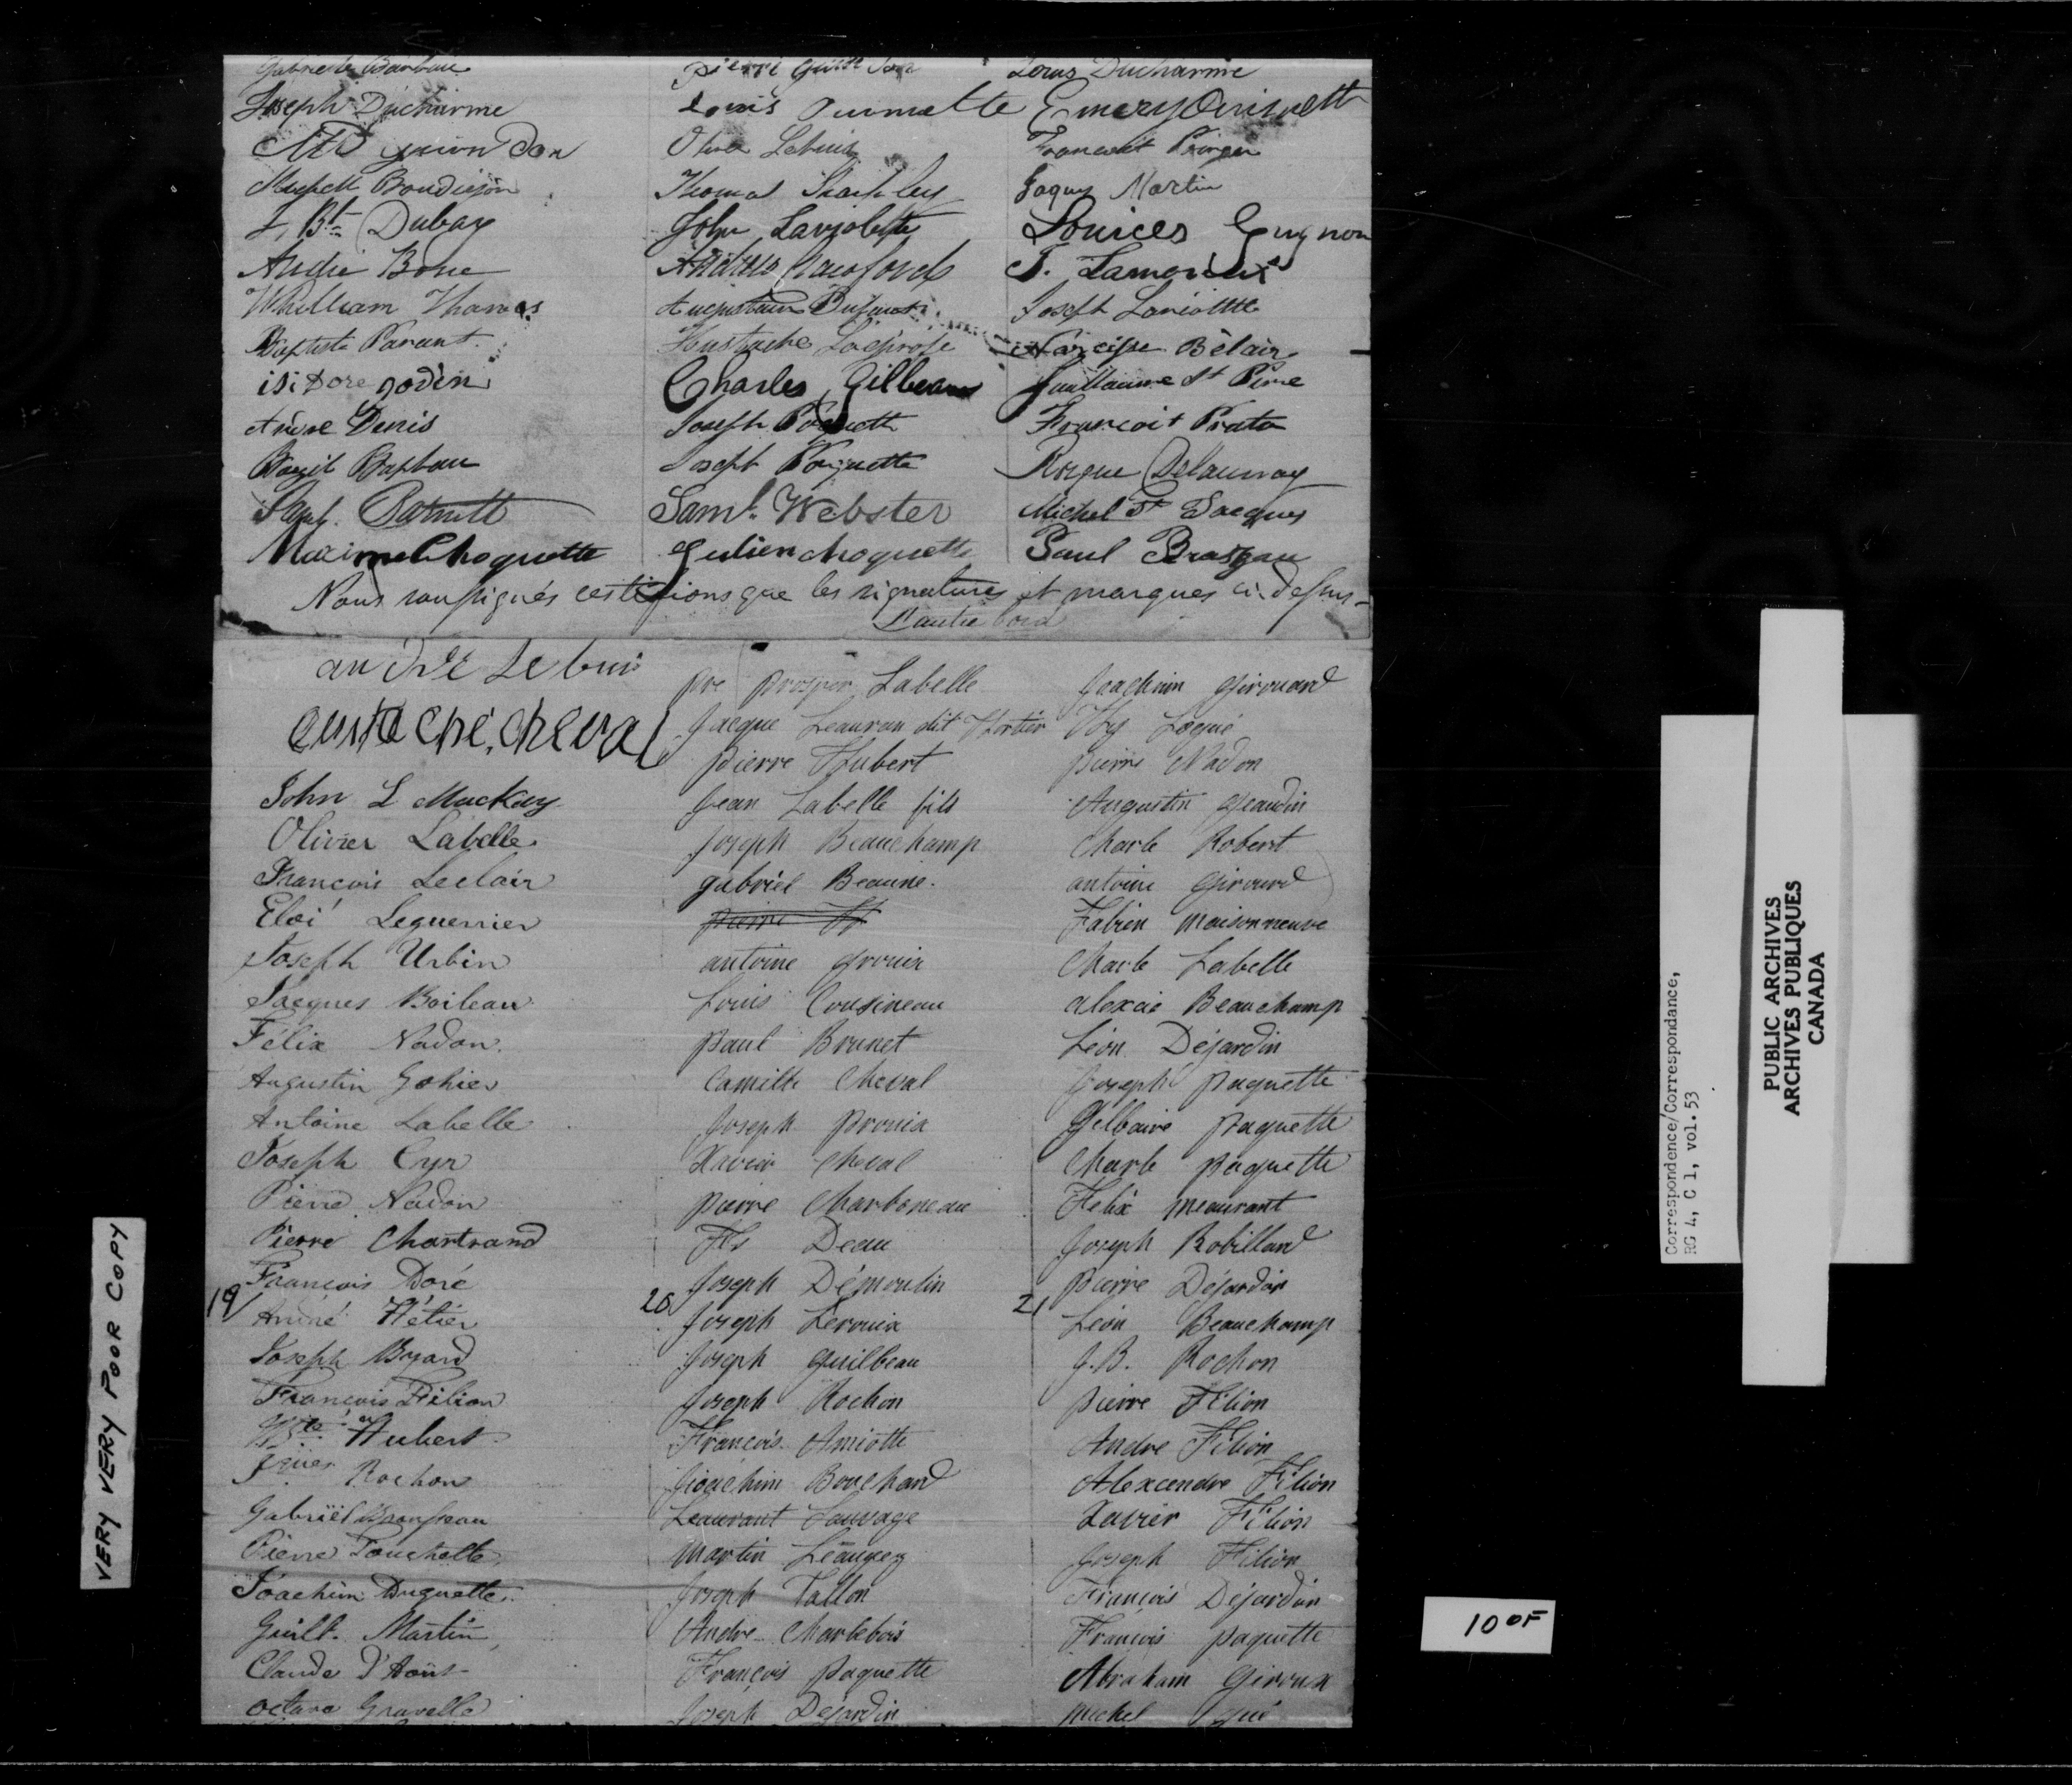 Gabriel Barbau
Joseph Ducharme
Michell Boudrison
J. Bte Dubay
André Bone
Whilliam Thomas
Baptiste Parant
isidore godin
André Denis
Bazil Barbau
Maxime Choquette
Pierre
Louis Ouimette
Olive Lebuis
Thomas
John Laviolette
Andrew Crawford
Augustin Dufour
Eustache Laframboise
Charles Gilbeau
Joseph Poquette
Joseph Poquette
Saml. Webster
Julien choquette
Louis Ducharme
Emery Ouimette
Francois
Jaques Martin
Louices Guignon
J. Lamoreux
Joseph Laviolette
Narcisse Bélair
Guillaume St Pierre
Francois Proto
Roque Delaunay
Michel St Jacques
Paul Brazeau
Nous soussignés certifions que les signatures et marques ci-dessus
L'autre bord
andré Lebuis
eustache cheval
John L Mackay
Olivier Labelle
François Leclair
Eloi Leguerrier
Joseph Urbin
Jacques Boileau
Félix Nadon
Augustin Gohier
Antoine Labelle
Joseph Cyr
Pierre Nadon
Pierre Chartrand
François Doré
19 André Hétier
Joseph Byard
François Filion
Bte Hubert
Rochon
Gabriël Brousseau
Pierre Touchette
Joachim Duguette
Guilt. Martin
Claude d'Aoüst
Octave Gravelle
pre prosper Labelle
Jacque Leauran dit Hortier
pierre Hubert
Jean Labelle fils
Joseph Beauchamp
gabriel Beaune
pierre H
antoine grouix
Louis Cousineau
paul Brunet
Camille Cheval
Joseph prouix
Xavier Cheval
pierre Charboneau
Fls Deau
Joseph Démoulin
20 Joseph Lerouix
Joseph guilbeau
Joseph Rochon
François Amiotte
Jioachim Bouchard
Leaurant Sauvage
Martin Léaugez
Joseph Tallon
Andre Charlebois
François paquette
Joseph Dejardin
Joachim girouard
Hy Logué
pierre Nadon
Augustin geaudin
Charle Robert
antoine girourd
Fabien maisonneuve
Charle Labelle
alexcie Beauchamp
Léon Déjardin
Joseph paquette
Gelbaire paquette
Charle paquette
Felix meaurant
Joseph Robillard
pierre Déjardin
21 Léon Beauchamp
J.B. Rochon
pierre Filion
Andre Filion
Alexcendre Filion
Xavier Filion
Joseph Filion
François Déjardin
François paquette
Abraham giroux
michel gué
VERY VERY POOR COPY
Correspondence/Correspondance,
RG 4, C 1, vol.53
PUBLIC ARCHIVES
ARCHIVES PUBLIQUES
CANADA
10 OF